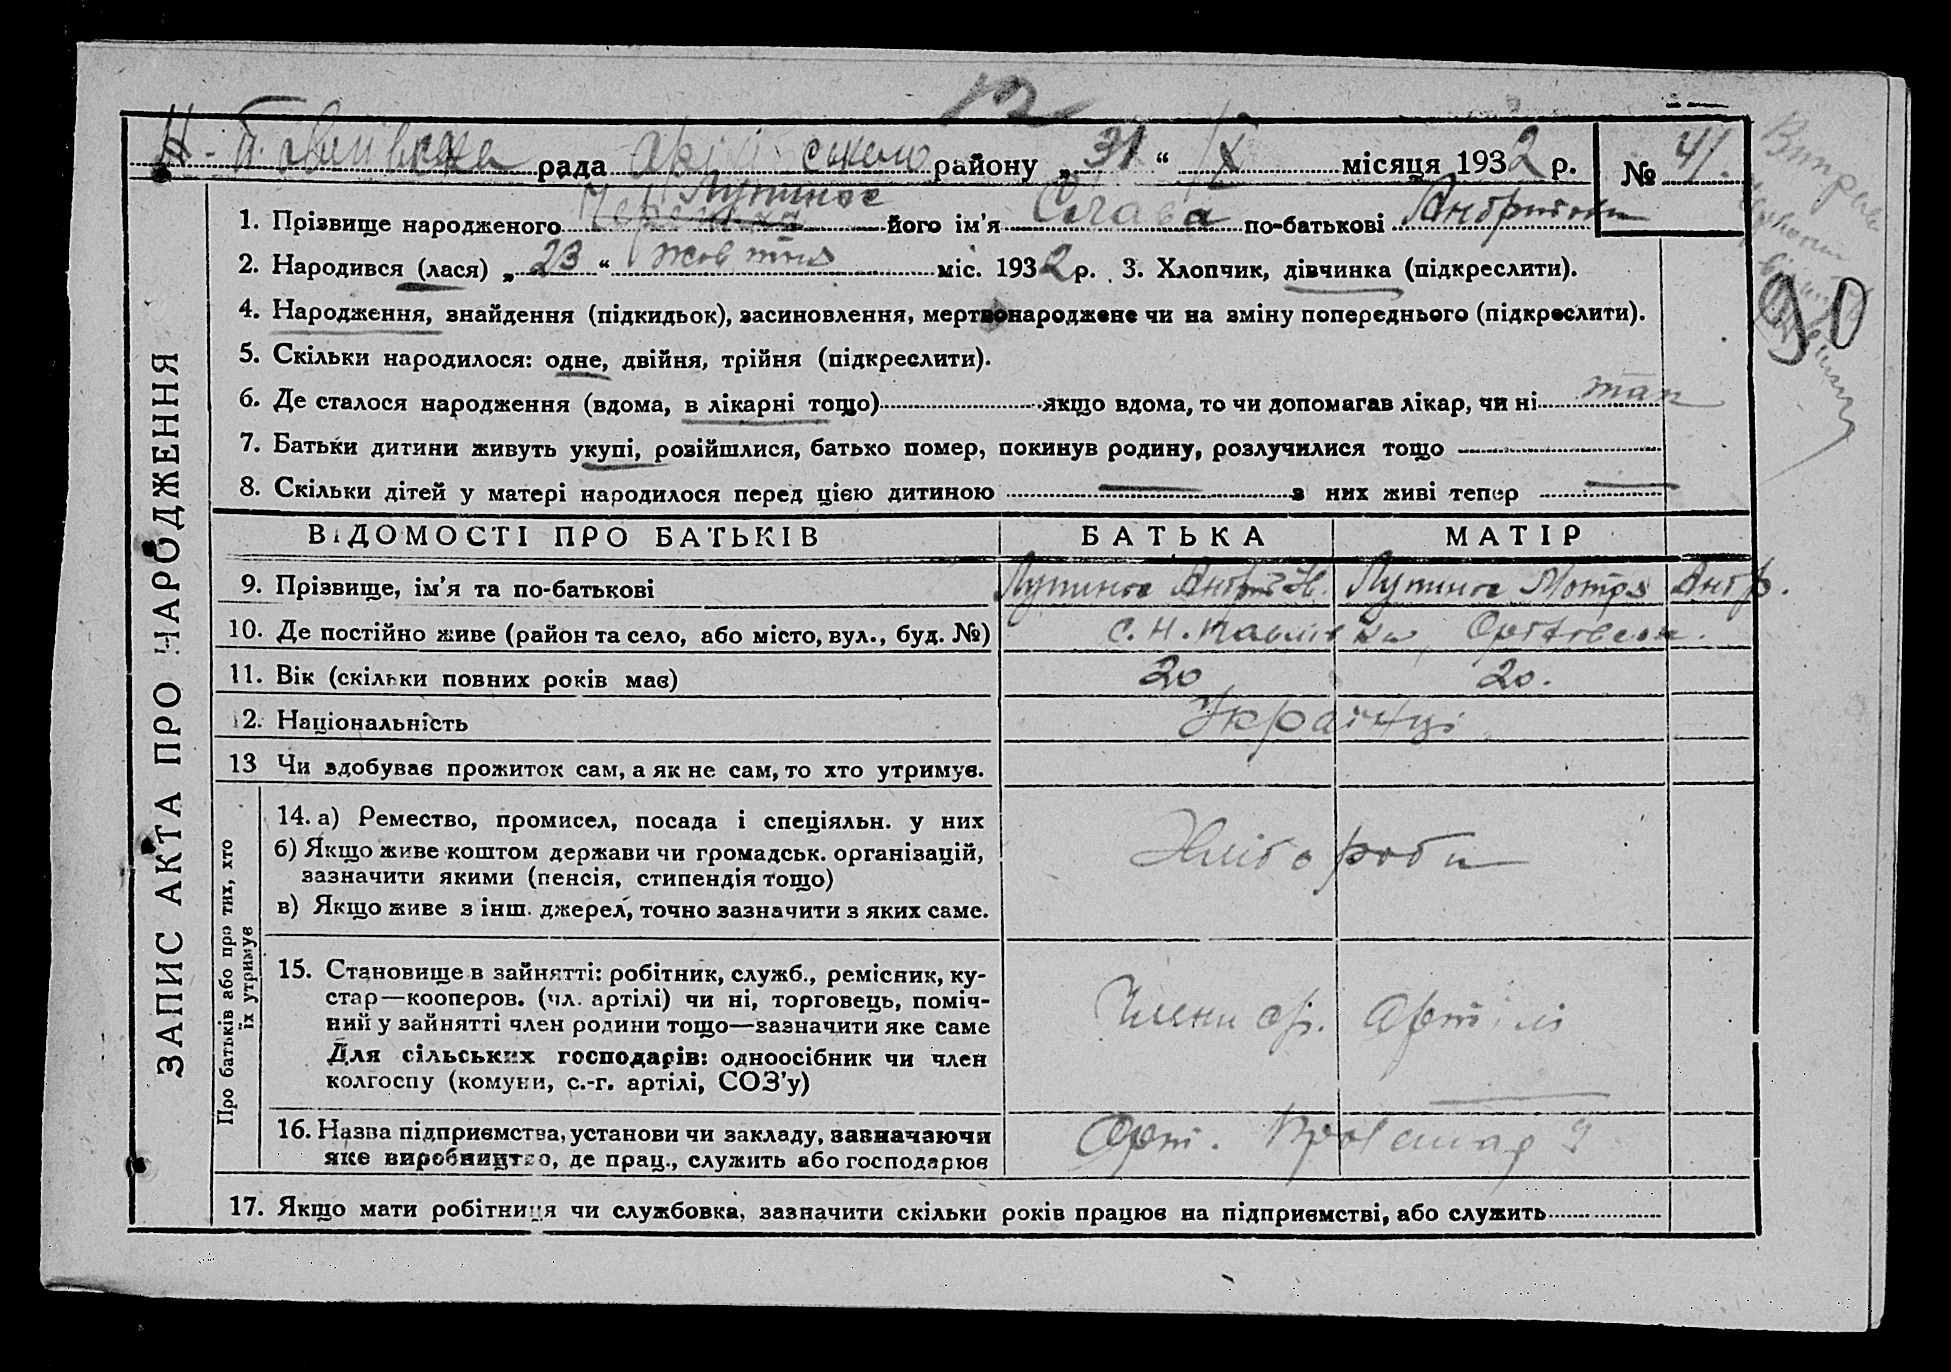 12
рада району „31“ X місяця 1932 р. № 41.
1. Прізвище народженого Лупинос його ім'я Слава по-батькові
2. Народився (лася) „23“ жовтня міс. 1932 р. 3. Хлопчик, дівчинка (підкреслити).
4. Народження, знайдення (підкидьок), засиновлення, мертвонароджене чи на зміну попереднього (підкреслити).
5. Скільки народилося: одне, двійня, трійня (підкреслити).
90
6. Де сталося народження (вдома, в лікарні тощо) якщо вдома, то чи допомагав лікар, чи ні так
7. Батьки дитини живуть укупі, розійшлися, батько помер, покинув родину, розлучилися тощо
8. Скільки дітей у матері народилося перед цією дитиною — з них живі тепер —
ЗАПИС АКТА ПРО НАРОДЖЕННЯ
ВІДОМОСТІ ПРО БАТЬКІВ БАТЬКА МАТІР
9. Прізвище, ім'я та по-батькові Лупинос Андрій Н. Лупинос Мотря Андр.
10. Де постійно живе (район та село, або місто, вул., буд. №) с. Н. Павлівка
11. Вік (скільки повних років має) 20 20.
12. Національність Українці
13 Чи здобуває прожиток сам, а як не сам, то хто утримує.
Про батьків або про тих, хто їх утримує
14. а) Ремество, промисел, посада і спеціяльн. у них
б) Якщо живе коштом держави чи громадськ. організацій,
зазначити якими (пенсія, стипендія тощо)
Хлібороби
в) Якщо живе з інш. джерел, точно зазначити з яких саме.
15. Становище в зайнятті: робітник, служб., ремісник, ку-
стар—кооперов. (чл. артілі) чи ні, торговець, поміч-
ний у зайнятті член родини тощо—зазначити яке саме
Члени с.г. Артілі
Для сільських господарів: одноосібник чи член
колгоспу (комуни, с.-г. артілі, СОЗ'у)
16. Назва підприємства, установи чи закладу, зазначаючи
яке виробництво, де прац., служить або господарює
Арт.
17. Якщо мати робітниця чи службовка, зазначити скільки років працює на підприємстві, або служить